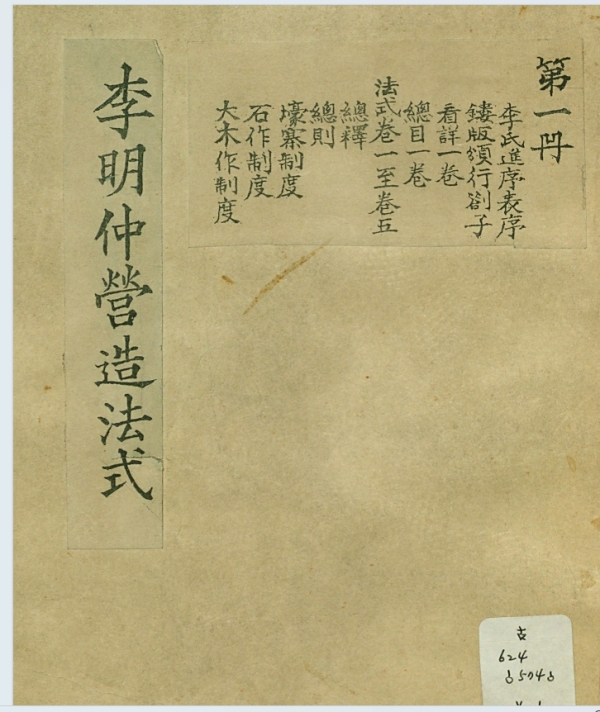 第一冊
李氏進序表序
鏤版頒行劄子
看詳一卷
總目一卷
法式卷一至卷五
總釋
總則
壕寨制度
石作制度
大木作制度
李明仲營造法式
古
624